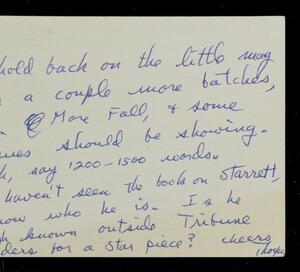 hold back on the little mag
a couple more batches,
More Fall, & some
ues should be showing.
h, say 1200-1500 words.
haven't seen the book on Starrett,
now who he is. Is he
gh known outside Tribune
ders for a star piece? cheers